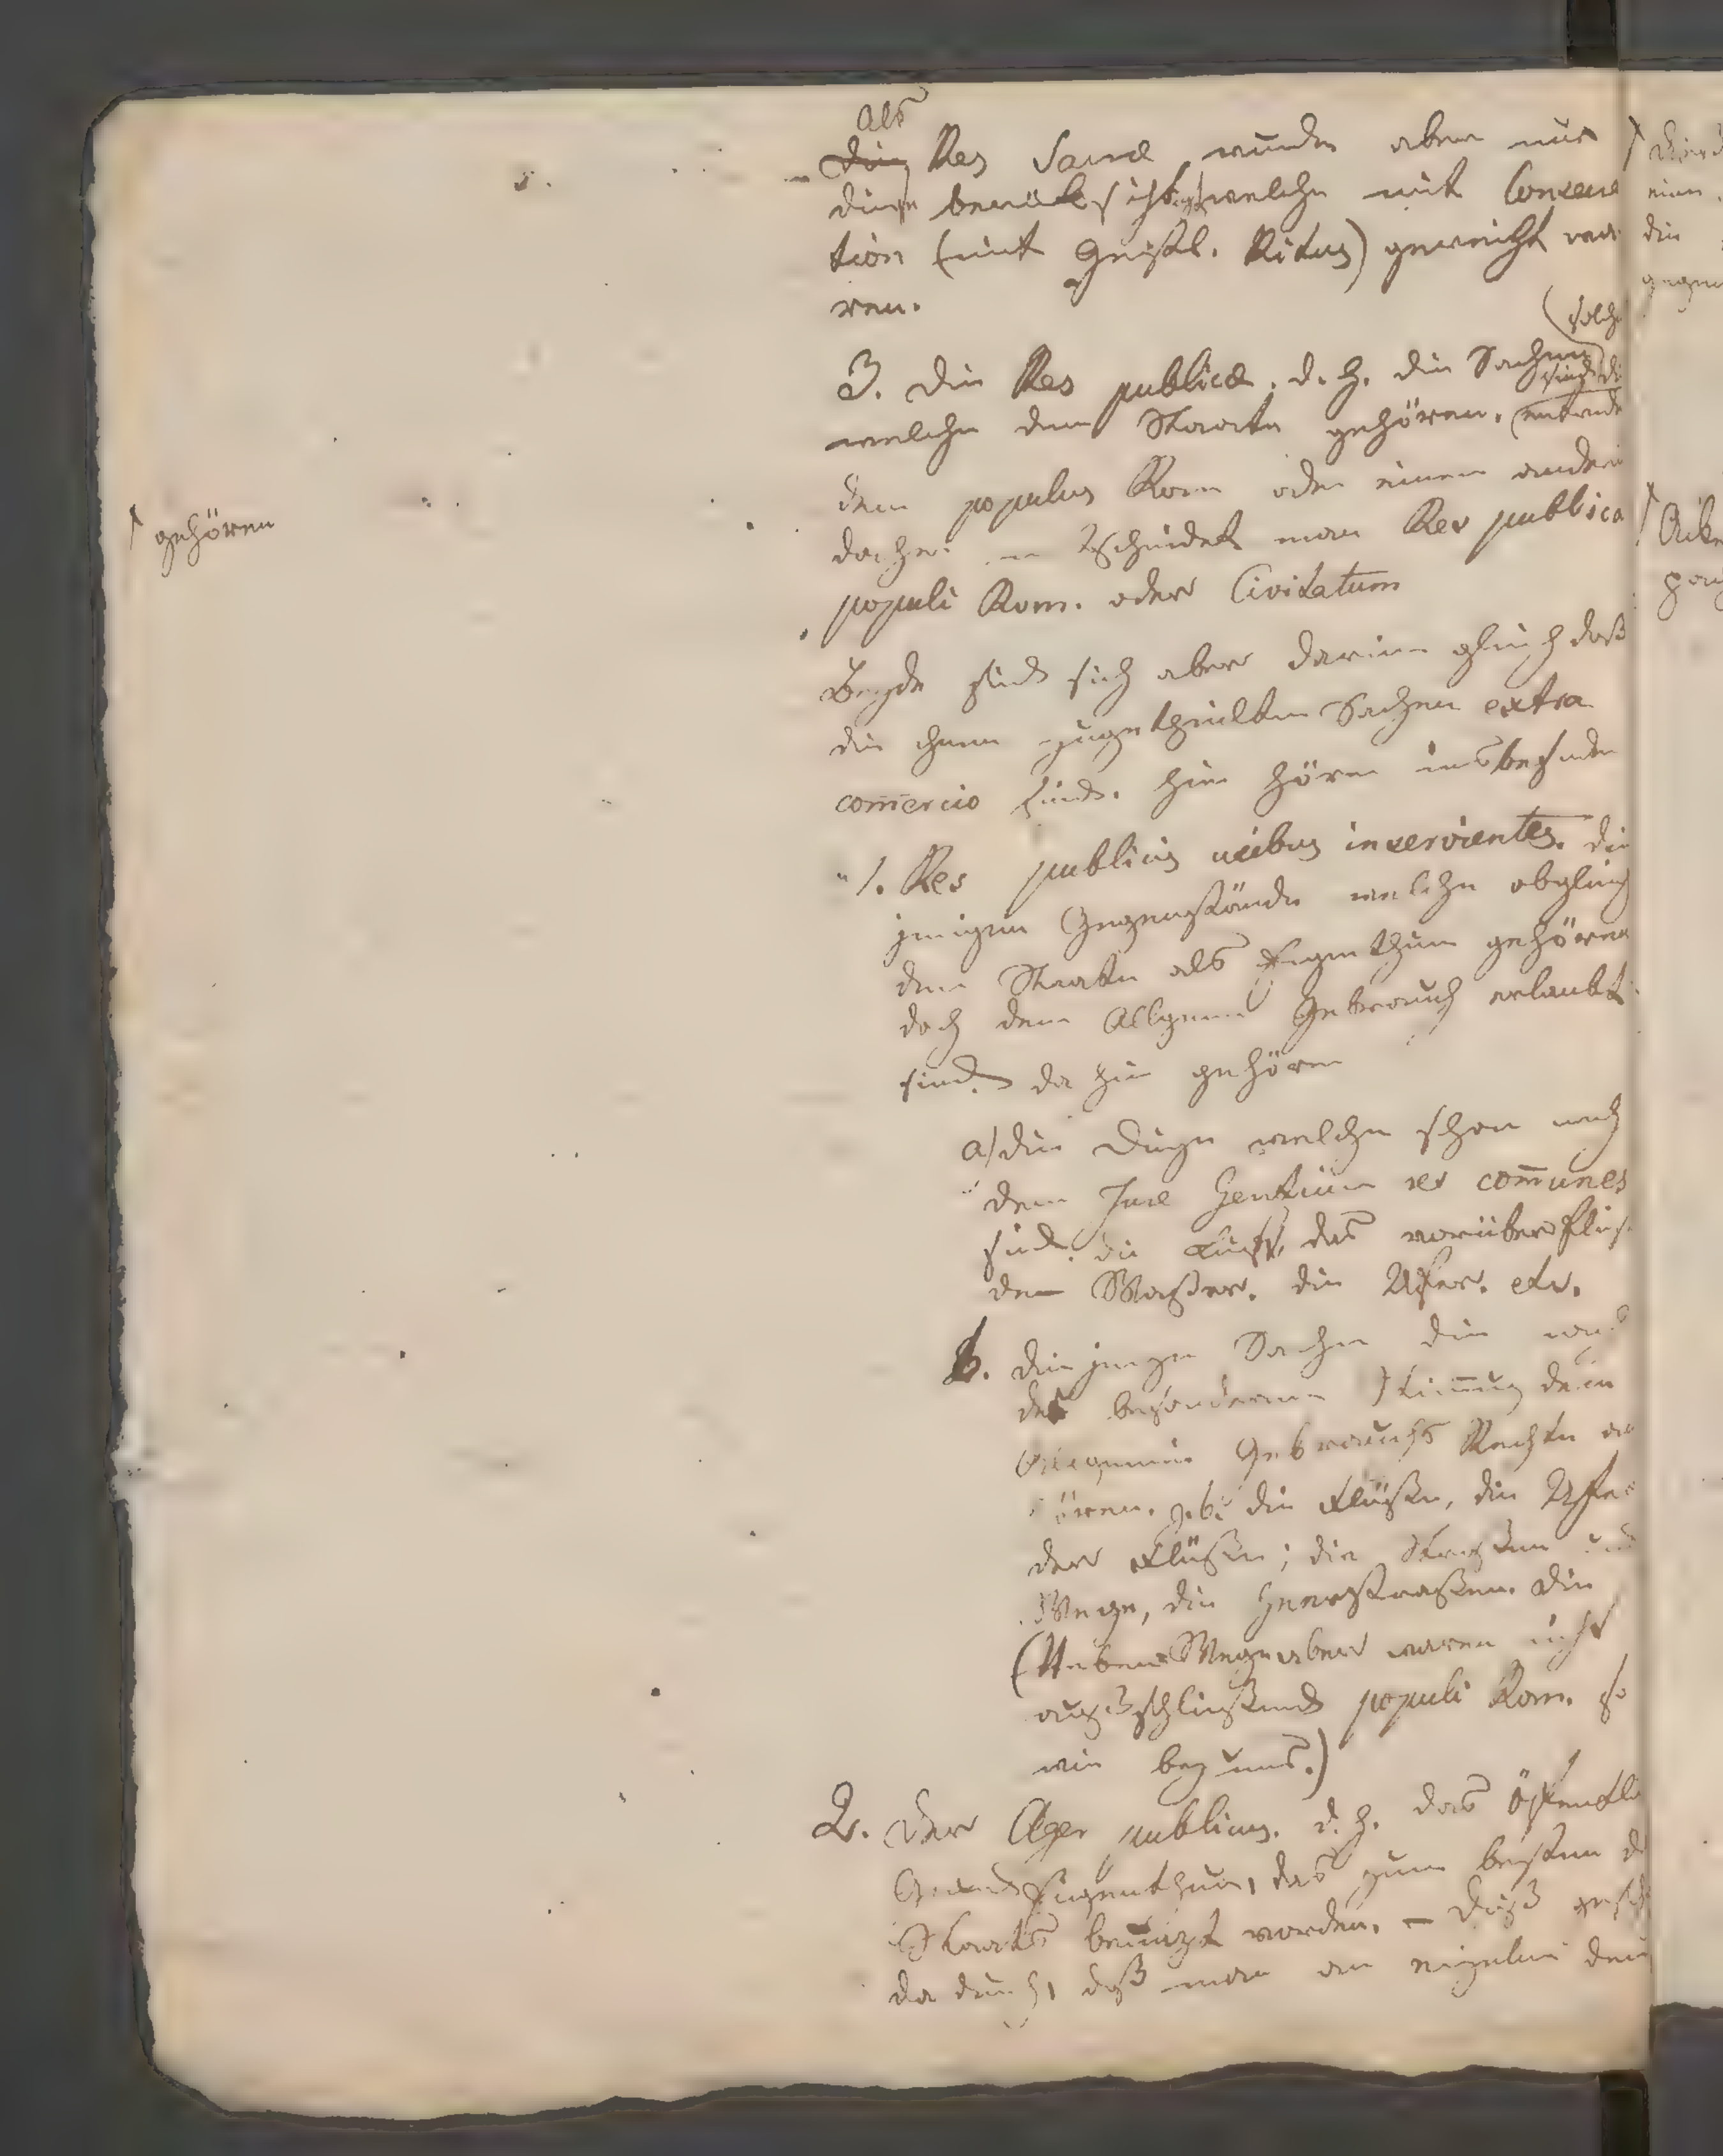 Als
die Res Sacræ wurden aber nur
diese berücksichtigt welche mit Consecra
tion (mit Geistl. Ritus) geweiht wa
ren.
3. Die Res publicæ. d. h. die Sachen (solche sind die
welche dem Staate gehören. entwede
dem populus Rom oder einem andern
daher unterscheidet man Res publica
populi Rom. oder Civitatum
gehören
Beyde sind sich aber darinn gleich daß
die ihnen zugetheilten Sachen extra
com̅ercio sind. hier hören insbesondere
1. Res publicis usibus inservientes. die
jenigen Gegenstände welche obgleich
dem Staate als Eigenthum gehören
doch dem Allgemein Gebrauch erlaubt
sind. da hin gehören
a) die Dinge welche schon nach
dem Jure Gentium res com̅unes
sind. die Luft, das vorüberfließ
den Waßer. die Ufer. etc.
b. diejenigen Sachen die
der besonderen dem
Allgemein Gebrauchs Rechte
ören. z. b. die Flüße, die Ufer
der Flüße; die Straßen und
Wege, die Heerstraßen. die
(Neben Wege aber waren nicht
ausschließend populi Rom. so
wie bey uns.)
2. Der Ager publicus. d. h. das öffentli
Grund Eigenthum, das zum besten d
Staats benuzt worden. – Dieß gesch
da durch, daß man an einzelne den